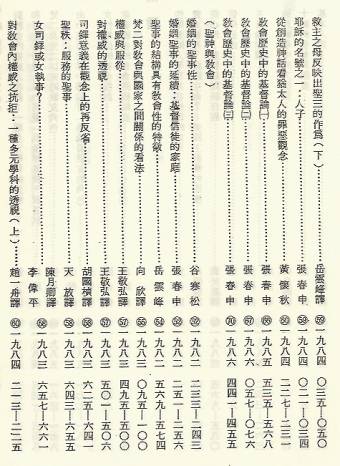 救主之母反映出聖三的作爲(下)……岳雲峰譯 59 一九八四 〇三五—〇五〇
耶穌的名號之一:人子……張春申 59 一九八四 〇二一—〇三四
從創造神話看猶太人的罪惡觀念……黃懷秋 60 一九八四 二二七—二三一
敎會歷史中的基督論㈠……張春申 一九八五 五三五—五六八
敎會歷史中的基督論㈡……張春申 67 一九八六 〇五七—〇七六
敎會歷史中的基督論㈢……張春申 70 一九八六 四四一—四五五
(聖神與敎會)
婚姻的聖事性……谷寒松 52 一九八二 二三三—二四三
婚姻聖事的延續:基督信徒的家庭……張春申 52 一九八二 二五一—二五六
聖事的結構具有敎會性的特徵……岳雲峰 54 一九八二 五六九—五七四
梵二對敎會與國家之間關係的看法……向欣譯 55 一九八三 〇九五—一〇〇
權威與服務……王敬弘譯 57 一九八三 四九五—五〇〇
對權威的透視……王敬弘譯 57 一九八三 五〇一—五〇六
司鐸意義在觀念上的再反省……胡國楨譯 58 一九八三 六二五—六四一
聖秩:服務的聖事……天放譯 58 一九八三
女司鐸或女執事?……陳月卿譯 58 一九八三 六五七—六六一
李偉平
對敎會內權威之抗拒:一種多元學科的透視(上)……趙一舟譯 60 一九八四 二一三—二二五